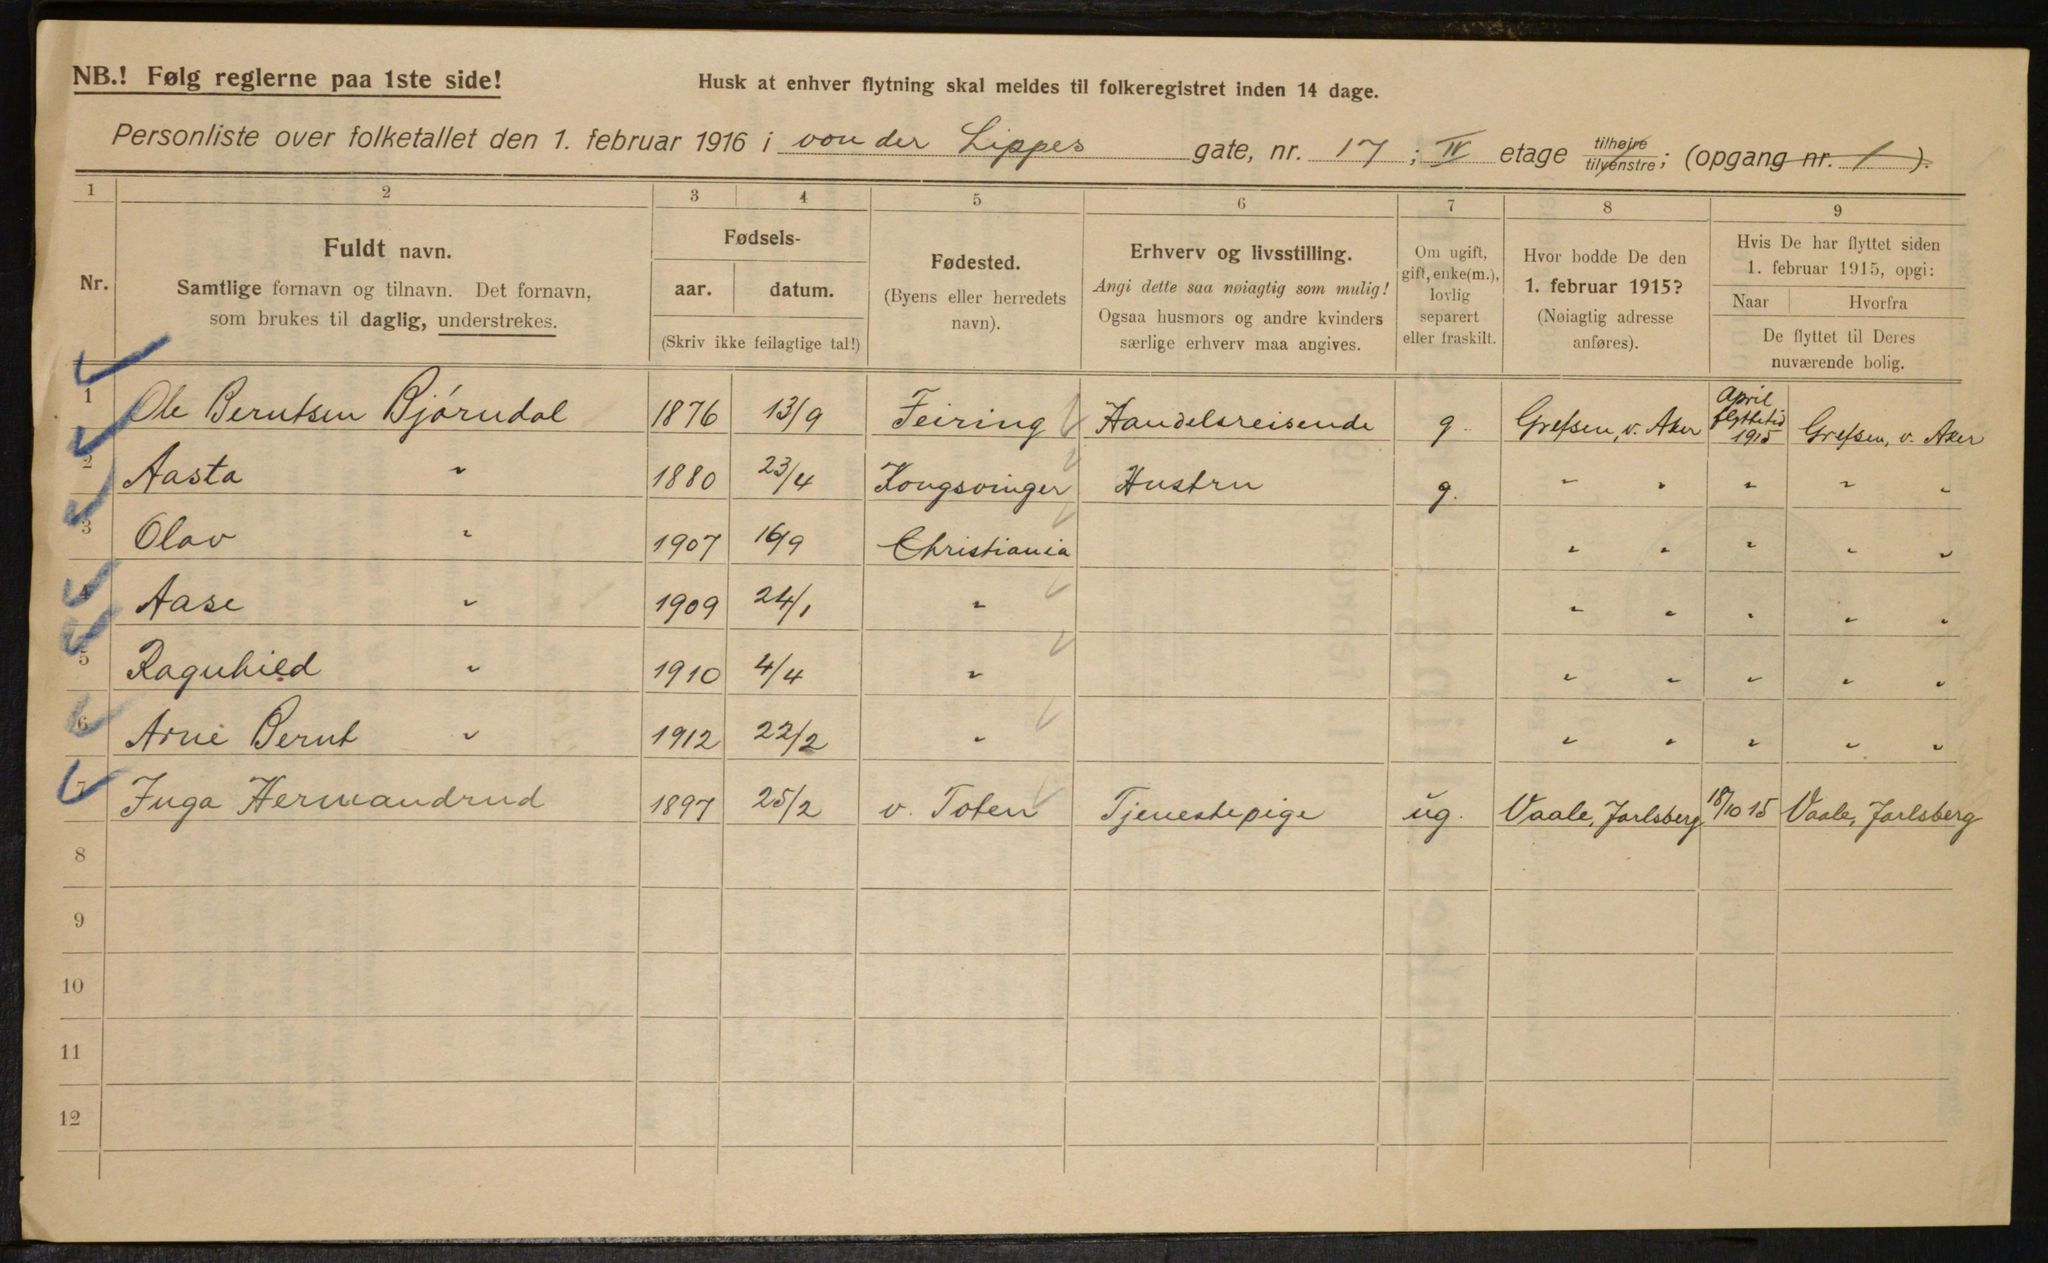 NB.! Følg reglerne paa 1ste side!
Husk at enhver flytning skal meldes til folkeregistret inden 14 dage.
Personliste over folketallet den 1. februar 1916 i von der Lippes gate, nr. 17 ; IV etage tilhøjre tilvenstre ; (opgang nr. 1 ).
1 2 3 4 5 6 7 8 9
Nr.
Fuldt navn.
Samtlige fornavn og tilnavn. Det fornavn,
som brukes til daglig, understrekes.
Fødsels-
aar. datum.
(Skriv ikke feilagtige tal!)
Fødested.
(Byens eller herredets
navn).
Erhverv og livsstilling.
Angi dette saa nøiagtig som mulig!
Ogsaa husmors og andre kvinders
særlige erhverv maa angives.
Om ugift,
gift, enke(m.),
lovlig
separert
eller fraskilt.
Hvor bodde De den
1. februar 1915?
(Nøiagtig adresse
anføres).
Hvis De har flyttet siden
1. februar 1915, opgi:
Naar Hvorfra
De flyttet til Deres
nuværende bolig.
1 Ole Berntsen Bjørndal 1876 13/9 Feiring Handelsreisende g. Grefsen, v. Aker April flyttetid 1915 Grefsen, v. Aker
2 Aasta " 1880 23/4 Kongsvinger Hustru g. " " " " "
3 Olav " 1907 16/9 Christiania " " " " "
4 Aase " 1909 24/1 " " " " " "
5 Ragnhild " 1910 4/4 " " " " " "
6 Arne Bernt " 1912 22/2 " " " " " "
7 Inga Hermandrud 1897 25/2 v. Toten Tjenestepige ug. Vaale, Jarlsberg 18/10 15 Vaale, Jarlsberg
8
9
10
11
12